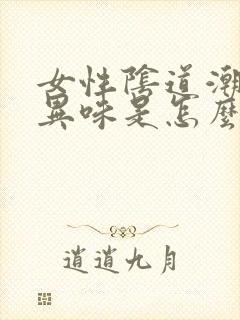 女性陰道潮
異味是怎麼
逍遙九月